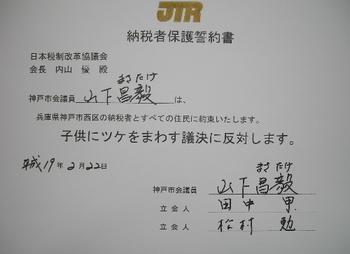 JTR
納税者保護誓約書
日本税制改革協議会
会長 内山 優 殿
まさたけ
神戸市会議員 山下昌毅 は、
兵庫県神戸市西区の納税者とすべての住民に約束いたします。
子供にツケをまわす議決に反対します。
平成19年2月22日
まさたけ
神戸市会議員 山下昌毅
立会人 田中 甲
立会人 松村 勉